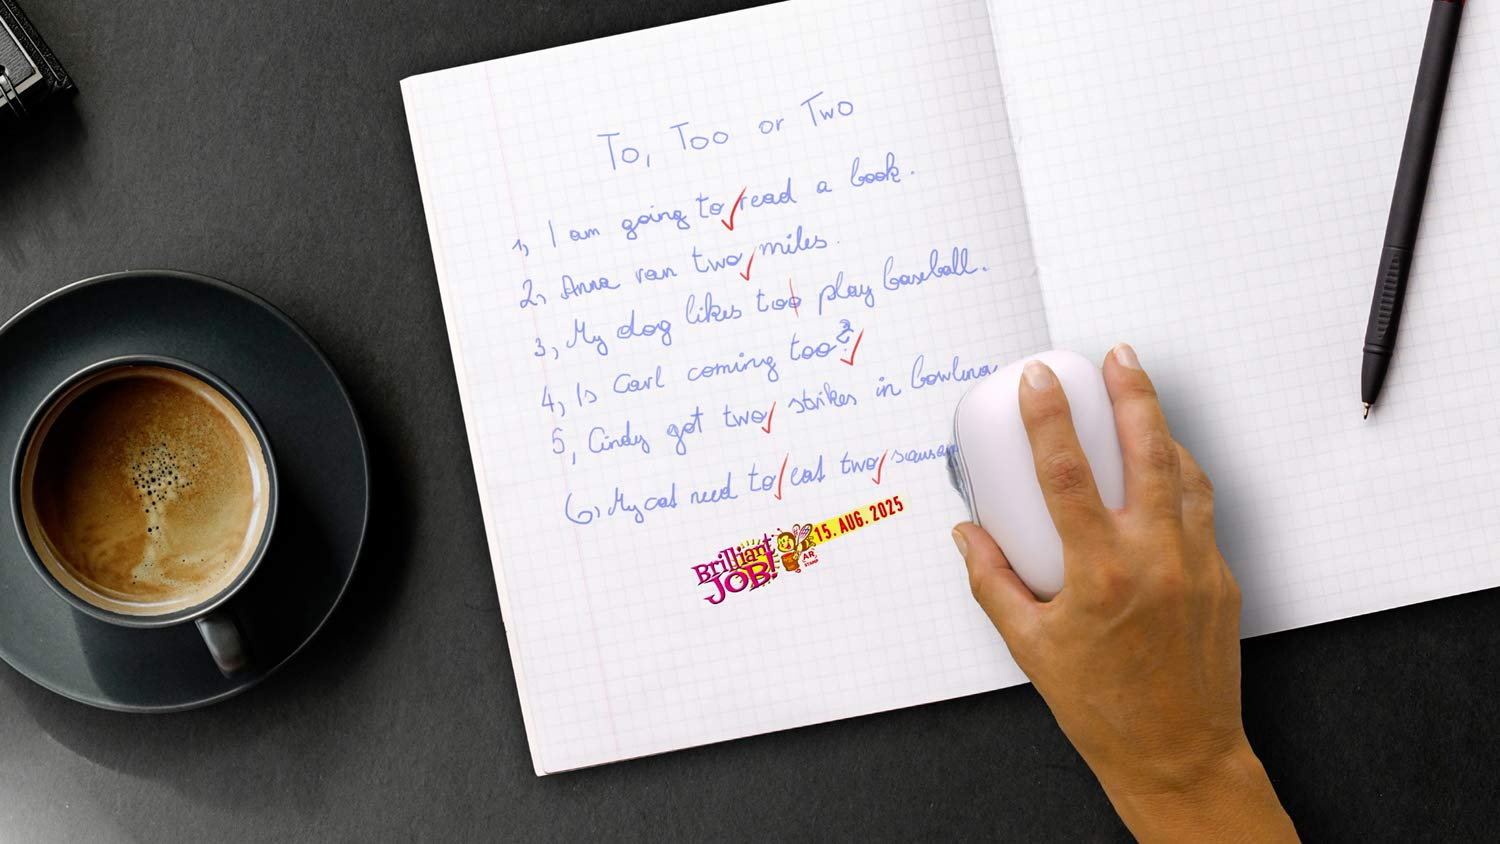 To, Too or Two
1, I am going to read a book.
2, Anna ran two miles.
3, My dog likes too play baseball.
4, Is Carl coming too?
5, Cindy got two strikes in bowling
6, My cat need to eat two
Brilliant JOB!
15. AUG. 2025
AR
STAMP